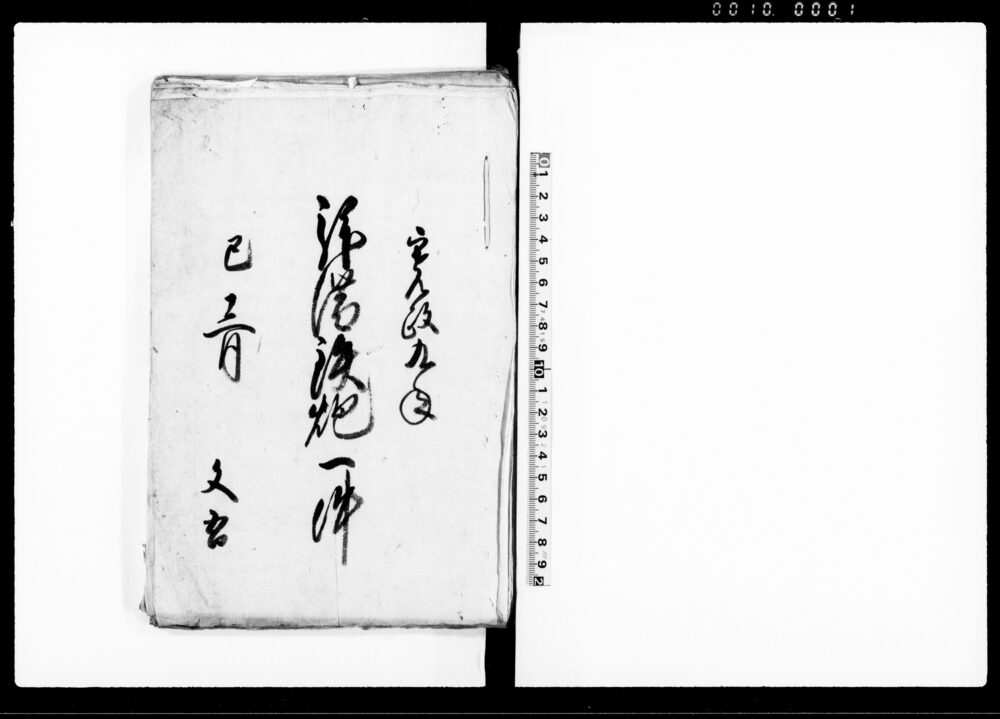 0010. 0001
寛政九年
拝借鉄炮一件
巳 三月 文
0 1 2 3 4 5 6 7 8 9 10 1 2 3 4 5 6 7 8 9 2